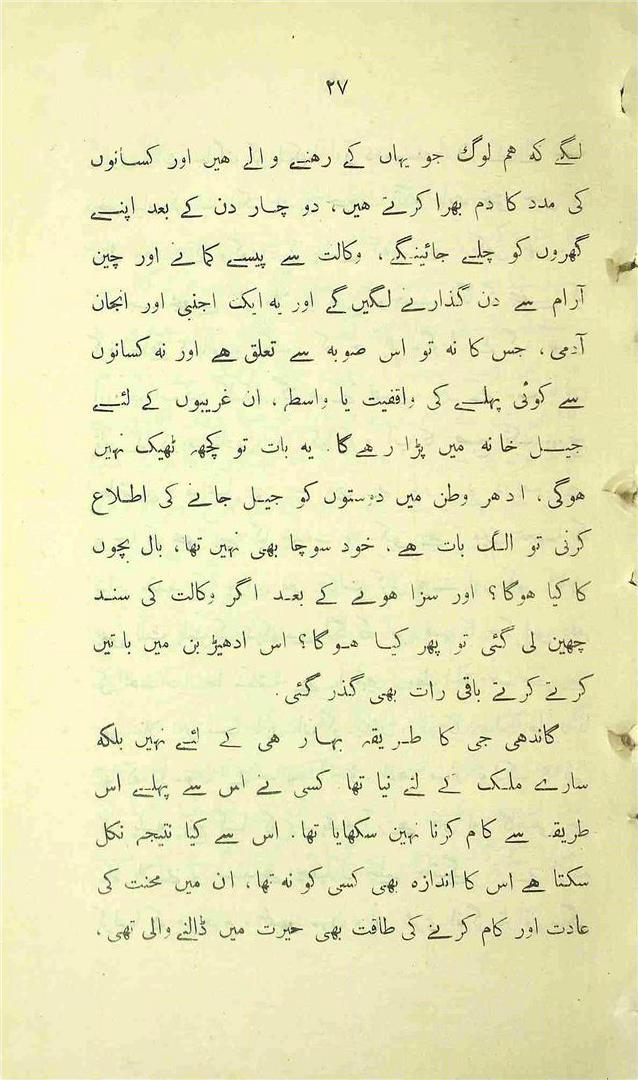 ۲۷
لگے که هم لوگ جو یہاں کے رهنے والے هیں اور کسانوں
کی مدد کا دم بهرا کرتے هیں، دو چار دن کے بعد اپنے
گهروں کو چلے جائینگے، وکالت سے پیسے کمانے اور چین
آرام سے دن گذارنے لگیں گے اور یه ایک اجنبی اور انجان
آدمی، جس کا نه تو اس صوبه سے تعلق هے اور نه کسانوں
سے کوئی پہلے کی واقفیت یا واسطہ، ان غریبوں کے لئے
جیل خانه میں پڑا رهے گا. یه بات تو کچهہ ٹهیک نہیں
هوگی، ادهر وطن میں دوستوں کو جیل جانے کی اطلاع
کرنی تو الگ بات هے، خود سوچا بهی نہیں تها، بال بچوں
کا کیا هوگا؟ اور سزا هونے کے بعد اگر وکالت کی سند
چهین لی گئی تو پهر کیا هوگا؟ اس ادهیڑ بن میں باتیں
کرتے کرتے باقی رات بهی گذر گئی.
گاندهی جی کا طریقہ بہار هی کے لئے نہیں بلکه
سارے ملک کے لئے نیا تها. کسی نے اس سے پہلے اس
طریقہ سے کام کرنا نہین سکهایا تها. اس سے کیا نتیجہ نکل
سکتا هے اس کا اندازه بهی کسی کو نه تها، ان میں محنت کی
عادت اور کام کرنے کی طاقت بهی حیرت میں ڈالنے والی تهی،